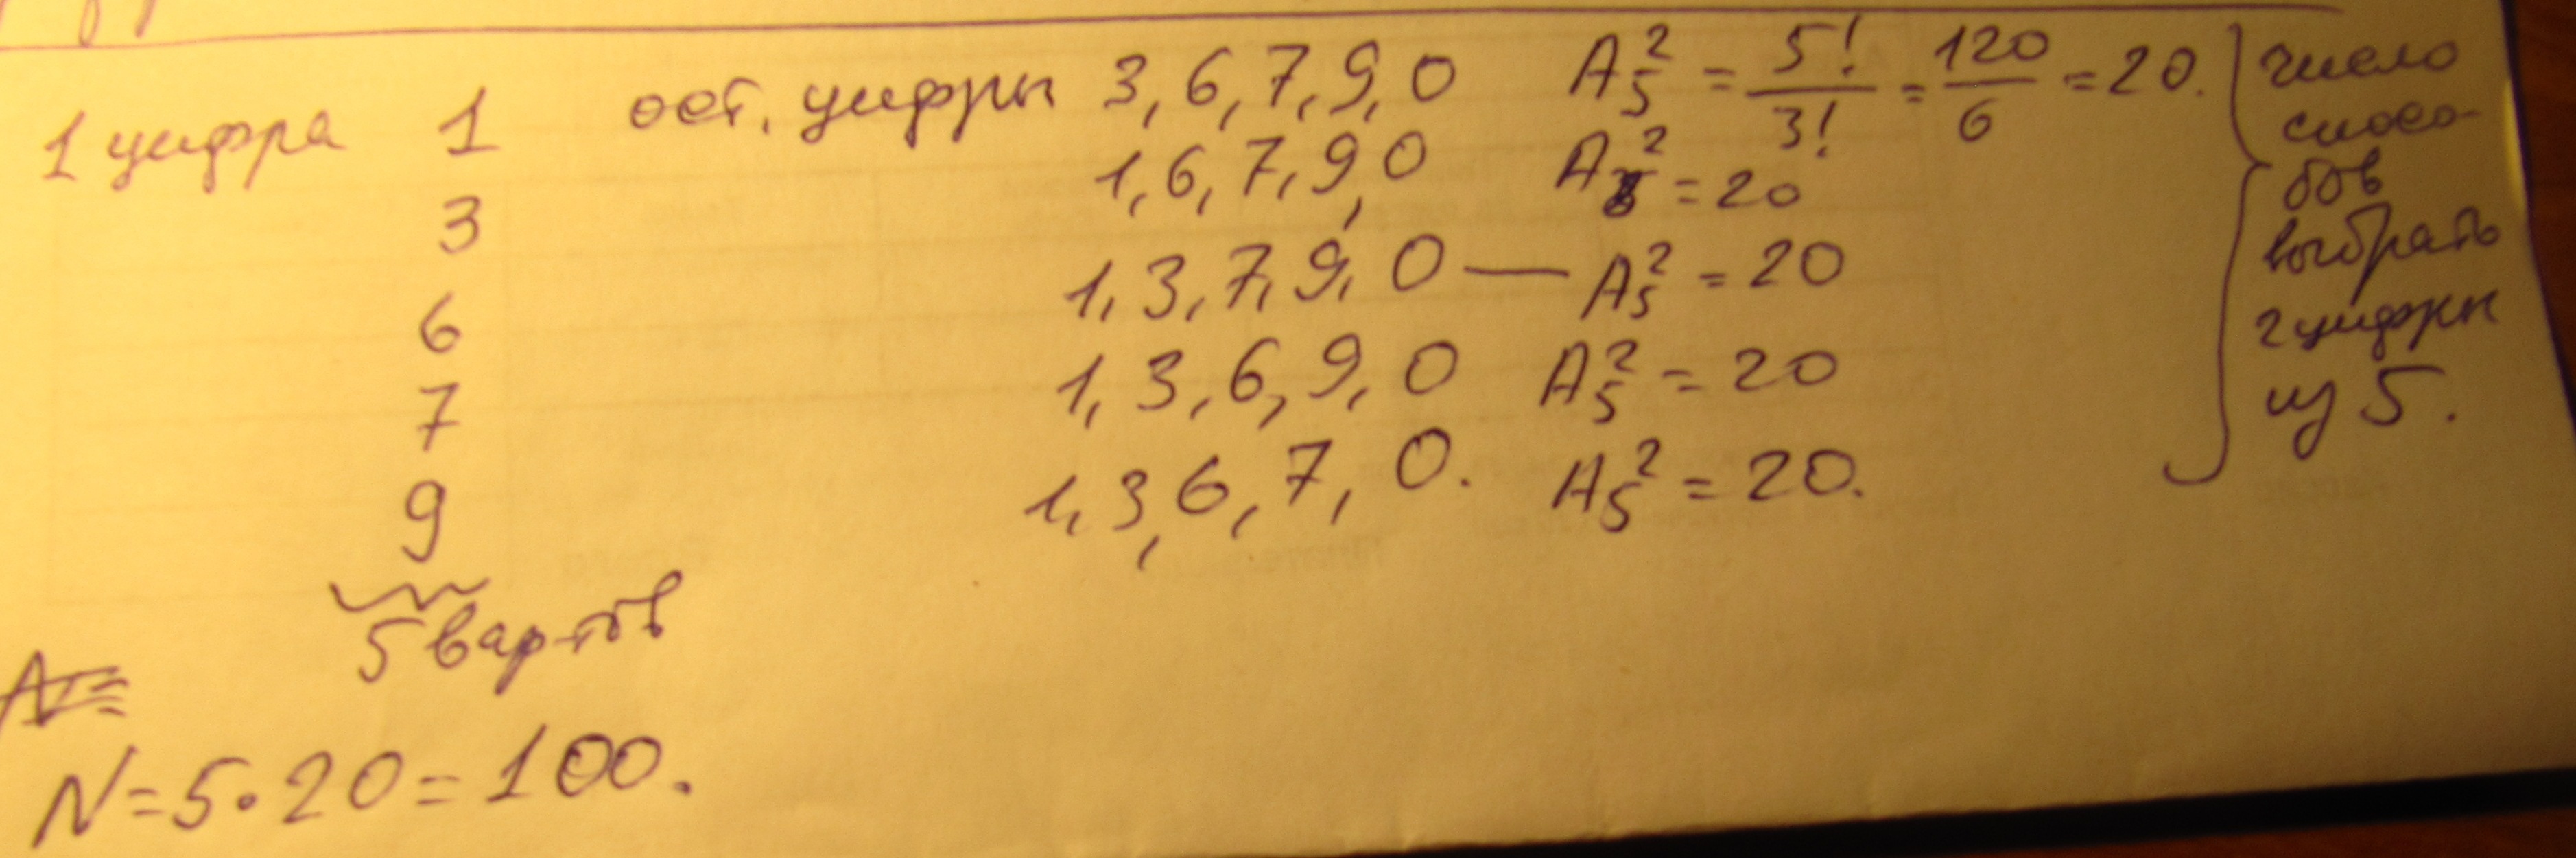 1 цифра 1 ост. цифры 3, 6, 7, 9, 0 A₅² = 5!/3! = 120/6 = 20.
3 1, 6, 7, 9, 0 A₅² = 20
6 1, 3, 7, 9, 0 — A₅² = 20
7 1, 3, 6, 9, 0 A₅² = 20
9 1, 3, 6, 7, 0. A₅² = 20.
число
спосо-
бов
выбрать
2 цифры
из 5.
5 вар-тов
N = 5 · 20 = 100.